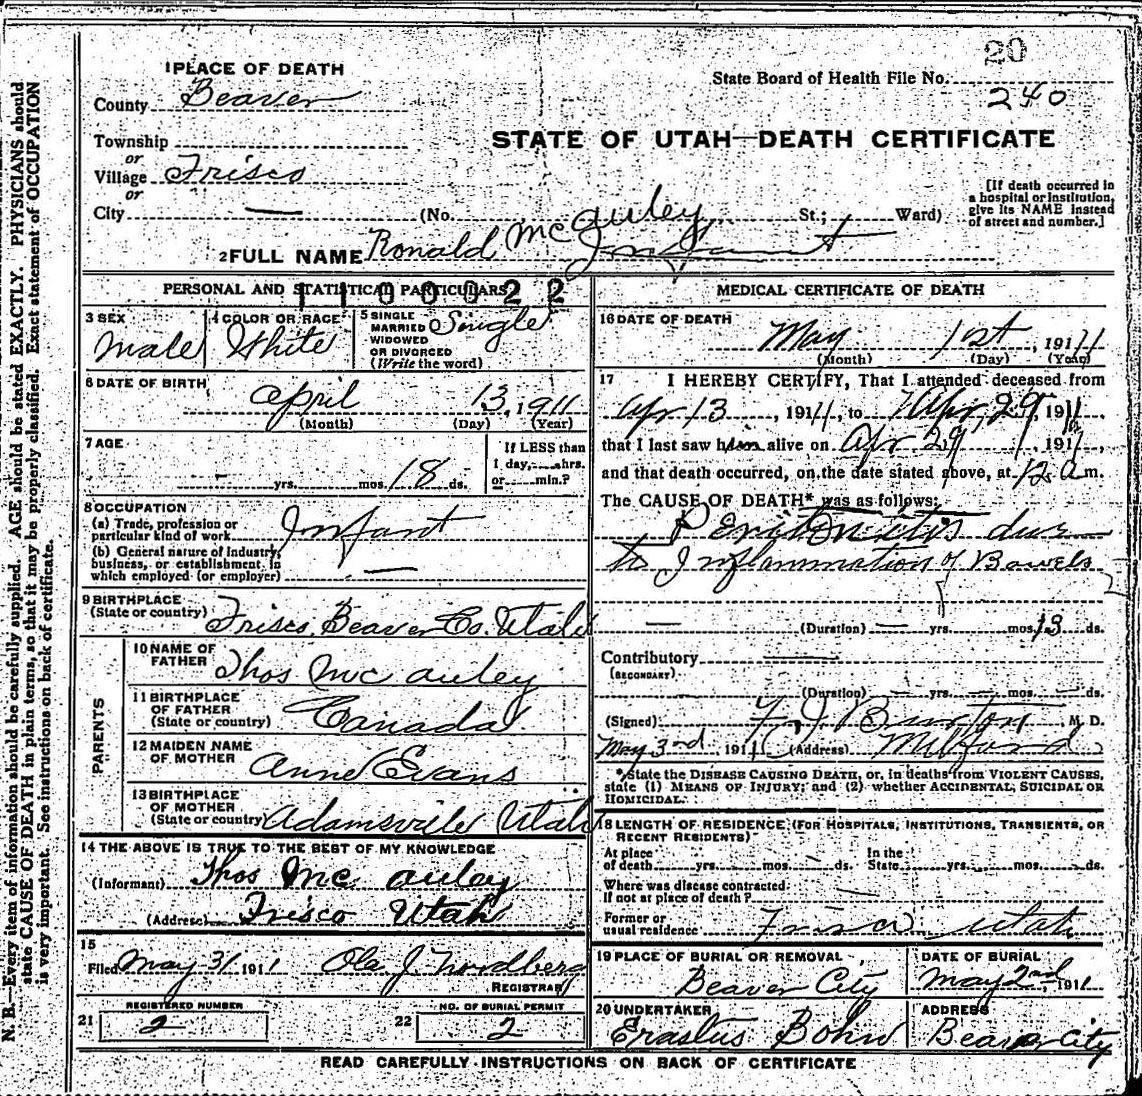 20
State Board of Health File No. 240
1 PLACE OF DEATH
County Beaver
Township
or
Village Frisco
or
City —
STATE OF UTAH—DEATH CERTIFICATE
(No. St.; Ward)
[If death occurred in
a hospital or institution,
give its NAME instead
of street and number.]
2 FULL NAME Ronald McAuley Infant
PERSONAL AND STATISTICAL PARTICULARS
1100022
3 SEX
Male
4 COLOR OR RACE
White
5 SINGLE
MARRIED
WIDOWED
OR DIVORCED
(Write the word)
Single
6 DATE OF BIRTH
April 13, 1911
(Month) (Day) (Year)
7 AGE
- yrs. mos. 18 ds.
If LESS than
1 day, hrs.
or min.?
8 OCCUPATION
(a) Trade, profession or
particular kind of work Infant
(b) General nature of Industry,
business, or establishment in
which employed (or employer) —
9 BIRTHPLACE
(State or country) Frisco, Beaver Co. Utah
PARENTS
10 NAME OF
FATHER Thos McAuley
11 BIRTHPLACE
OF FATHER
(State or country) Canada
12 MAIDEN NAME
OF MOTHER Anne Evans
13 BIRTHPLACE
OF MOTHER
(State or country) Adamsville Utah
14 THE ABOVE IS TRUE TO THE BEST OF MY KNOWLEDGE
(Informant) Thos McAuley
(Address) Frisco Utah
15
Filed May 31 1911 Ola J Nordberg
REGISTRAR
REGISTERED NUMBER
21 2
NO. OF BURIAL PERMIT
22 2
MEDICAL CERTIFICATE OF DEATH
16 DATE OF DEATH
May 1st, 1911
(Month) (Day) (Year)
17 I HEREBY CERTIFY, That I attended deceased from
Apr 13, 1911, to Apr, 29, 1911,
that I last saw him alive on Apr 29, 191
and that death occurred, on the date stated above, at 12 a m.
The CAUSE OF DEATH* was as follows:
Peritonitis due
to Inflammation of Bowels
— (Duration) — yrs. mos. 13 ds.
Contributory —
(SECONDARY)
(Duration) — yrs. — mos. — ds.
(Signed) F. J. Burton, M. D.
May 3rd 1911 (Address) Milford
*State the DISEASE CAUSING DEATH, or, in deaths from VIOLENT CAUSES,
state (1) MEANS OF INJURY; and (2) whether ACCIDENTAL, SUICIDAL OR
HOMICIDAL.
18 LENGTH OF RESIDENCE (FOR HOSPITALS, INSTITUTIONS, TRANSIENTS, OR
RECENT RESIDENTS)
At place
of death yrs. mos. ds. In the
State yrs. mos. ds.
Where was disease contracted
if not at place of death? —
Former or
usual residence Frisco Utah
19 PLACE OF BURIAL OR REMOVAL
Beaver City
DATE OF BURIAL
May 2nd, 1911
20 UNDERTAKER
Erastus Bohn
ADDRESS
Beaver City
READ CAREFULLY INSTRUCTIONS ON BACK OF CERTIFICATE
N. B.—Every item of information should be carefully supplied. AGE should be stated EXACTLY. PHYSICIANS should
state CAUSE OF DEATH in plain terms, so that it may be properly classified. Exact statement of OCCUPATION
is very important. See instructions on back of certificate.